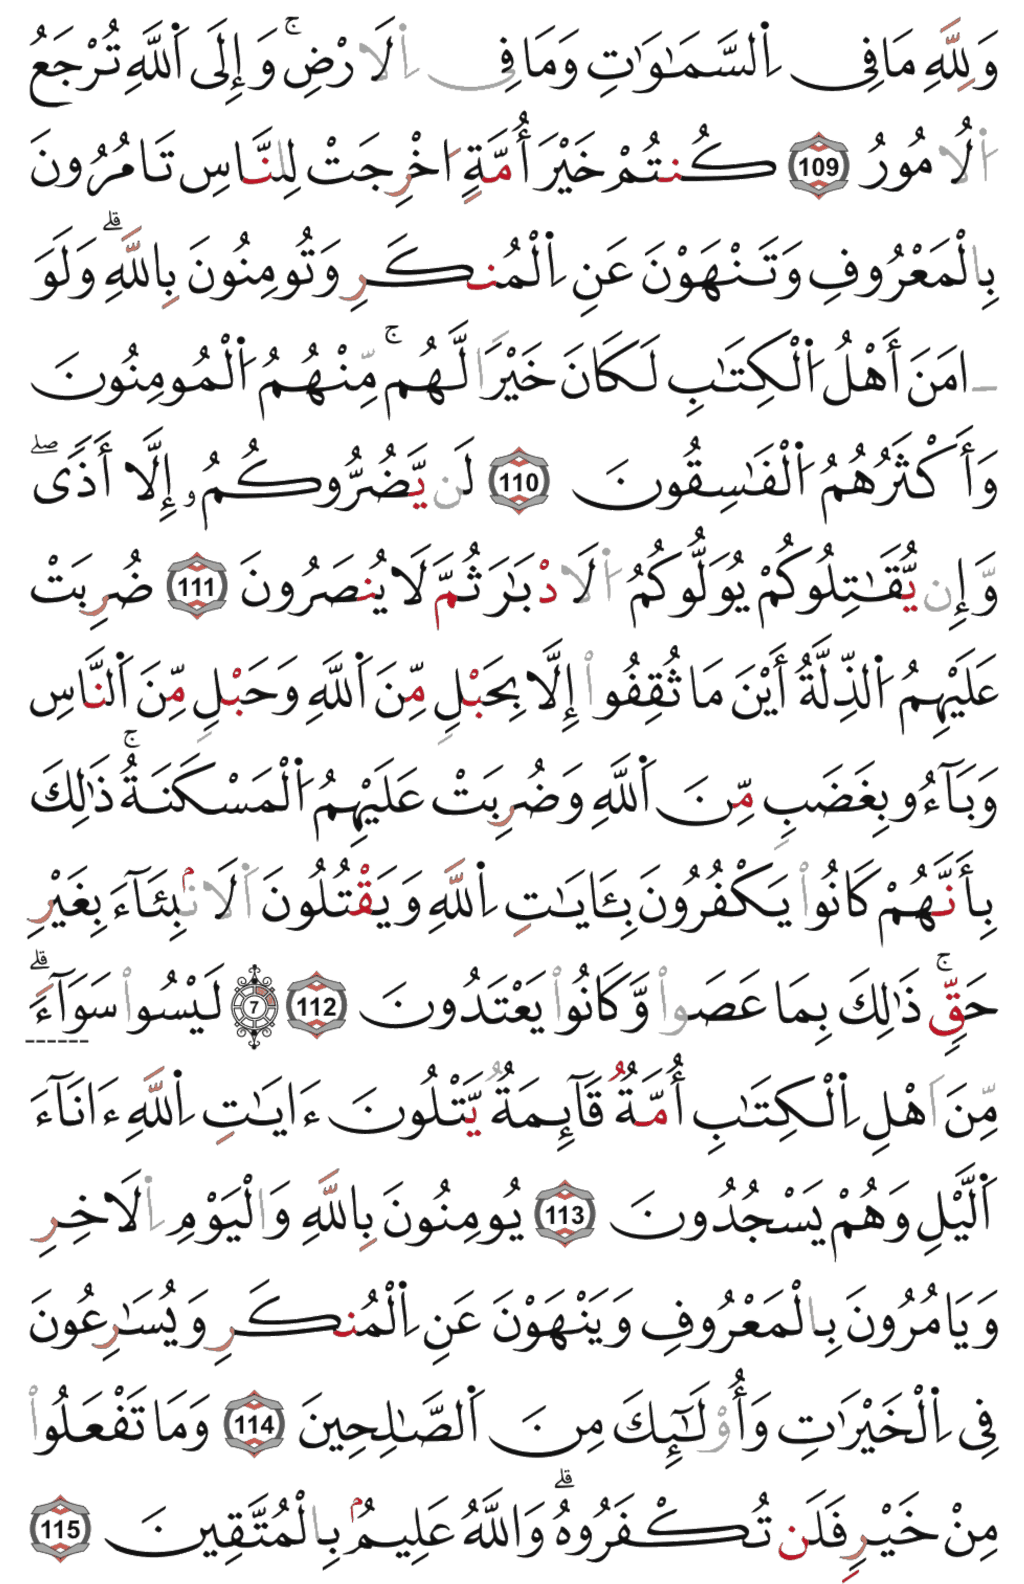 وَلِلَّهِ مَا فِى اِ۬لسَّمَٰوَٰتِ وَمَا فِى اِ۬لَارْضِۖ وَإِلَى اَ۬للَّهِ تُرْجَعُ
اُ۬لُامُورُ 109 كُنتُمْ خَيْرَ أُمَّةٍ اُخْرِجَتْ لِلنَّاسِ تَامُرُونَ
بِالْمَعْرُوفِ وَتَنْهَوْنَ عَنِ اِ۬لْمُنكَرِ وَتُومِنُونَ بِاللَّهِۗ وَلَوَ
امَنَ أَهْلُ اُ۬لْكِتَٰبِ لَكَانَ خَيْرًا لَّهُمۚ مِّنْهُمُ اُ۬لْمُومِنُونَ
وَأَكْثَرُهُمُ اُ۬لْفَٰسِقُونَ 110 لَن يَّضُرُّوكُمُۥ إِلَّا أَذًىۖ
وَّإِن يُّقَٰتِلُوكُمْ يُوَلُّوكُمُ اُ۬لَادْبَٰرَ ثُمَّ لَا يُنصَرُونَ 111 ضُرِبَتْ
عَلَيْهِمُ اُ۬لذِّلَّةُ أَيْنَ مَا ثُقِفُواْ إِلَّا بِحَبْلٍ مِّنَ اَ۬للَّهِ وَحَبْلٍ مِّنَ اَ۬لنَّاسِ
وَبَآءُو بِغَضَبٍ مِّنَ اَ۬للَّهِ وَضُرِبَتْ عَلَيْهِمُ اُ۬لْمَسْكَنَةُۚ ذَٰلِكَ
بِأَنَّهُمْ كَانُواْ يَكْفُرُونَ بِـَٔايَٰتِ اِ۬للَّهِ وَيَقْتُلُونَ اَ۬لَانۢبِئَآءَ بِغَيْرِ
حَقٍّۚ ذَٰلِكَ بِمَا عَصَواْ وَّكَانُواْ يَعْتَدُونَ 112 7 لَيْسُواْ سَوَآءًۗ
مِّنَ اَهْلِ اِ۬لْكِتَٰبِ أُمَّةٌ قَآئِمَةٌ يَّتْلُونَ ءَايَٰتِ اِ۬للَّهِ ءَانَآءَ
اَ۬لَّيْلِ وَهُمْ يَسْجُدُونَ 113 يُومِنُونَ بِاللَّهِ وَالْيَوْمِ اِ۬لَاخِرِ
وَيَامُرُونَ بِالْمَعْرُوفِ وَيَنْهَوْنَ عَنِ اِ۬لْمُنكَرِ وَيُسَٰرِعُونَ
فِى اِ۬لْخَيْرَٰتِ وَأُوْلَٰٓئِكَ مِنَ اَ۬لصَّٰلِحِينَ 114 وَمَا تَفْعَلُواْ
مِنْ خَيْرٍ فَلَن تُكْفَرُوهُۗ وَاللَّهُ عَلِيمُۢ بِالْمُتَّقِينَ 115